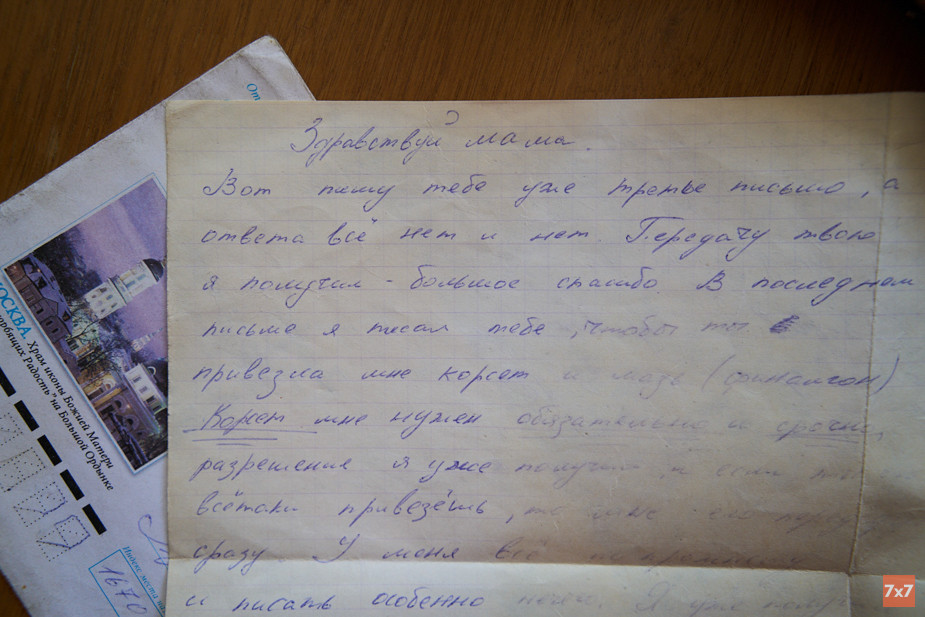 Здравствуй мама.
Вот пишу тебе уже третье письмо, а
ответа всё нет и нет. Передачу твою
я получил - большое спасибо. В последнем
письме я писал тебе, чтобы ты
привезла мне корсет и мазь (финалгон)
Корсет мне нужен обязательно и срочно,
разрешение я уже получил и если ты
всётаки привезёшь, то мне его
сразу. У меня всё по прежнему
и писать особенно нечего. Я уже
От
МОСКВА. Храм иконы Божией Матери
"Всех скорбящих Радость" на Большой Ордынке
Индекс места
1670
7x7